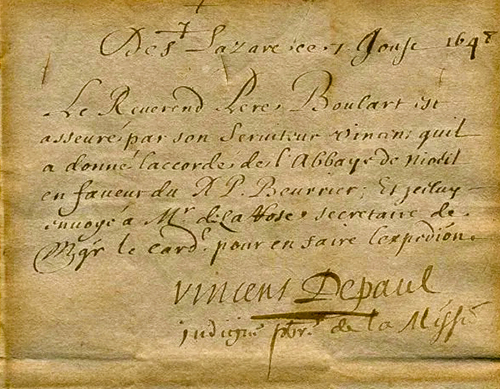 De St Lazare ce 7 Jouse 1648
Le Reverend Pere Boulart est
asseure par son Seruiteur vincent quil
a donné laccorde de l'Abbaye de
en faueur du R P. Beurrier; Et
enuoye a Mr de la Fose secretaire de
Mgr le card. pour en faire lexpedion.
vincent Depaul
indigne pbre de la Missi